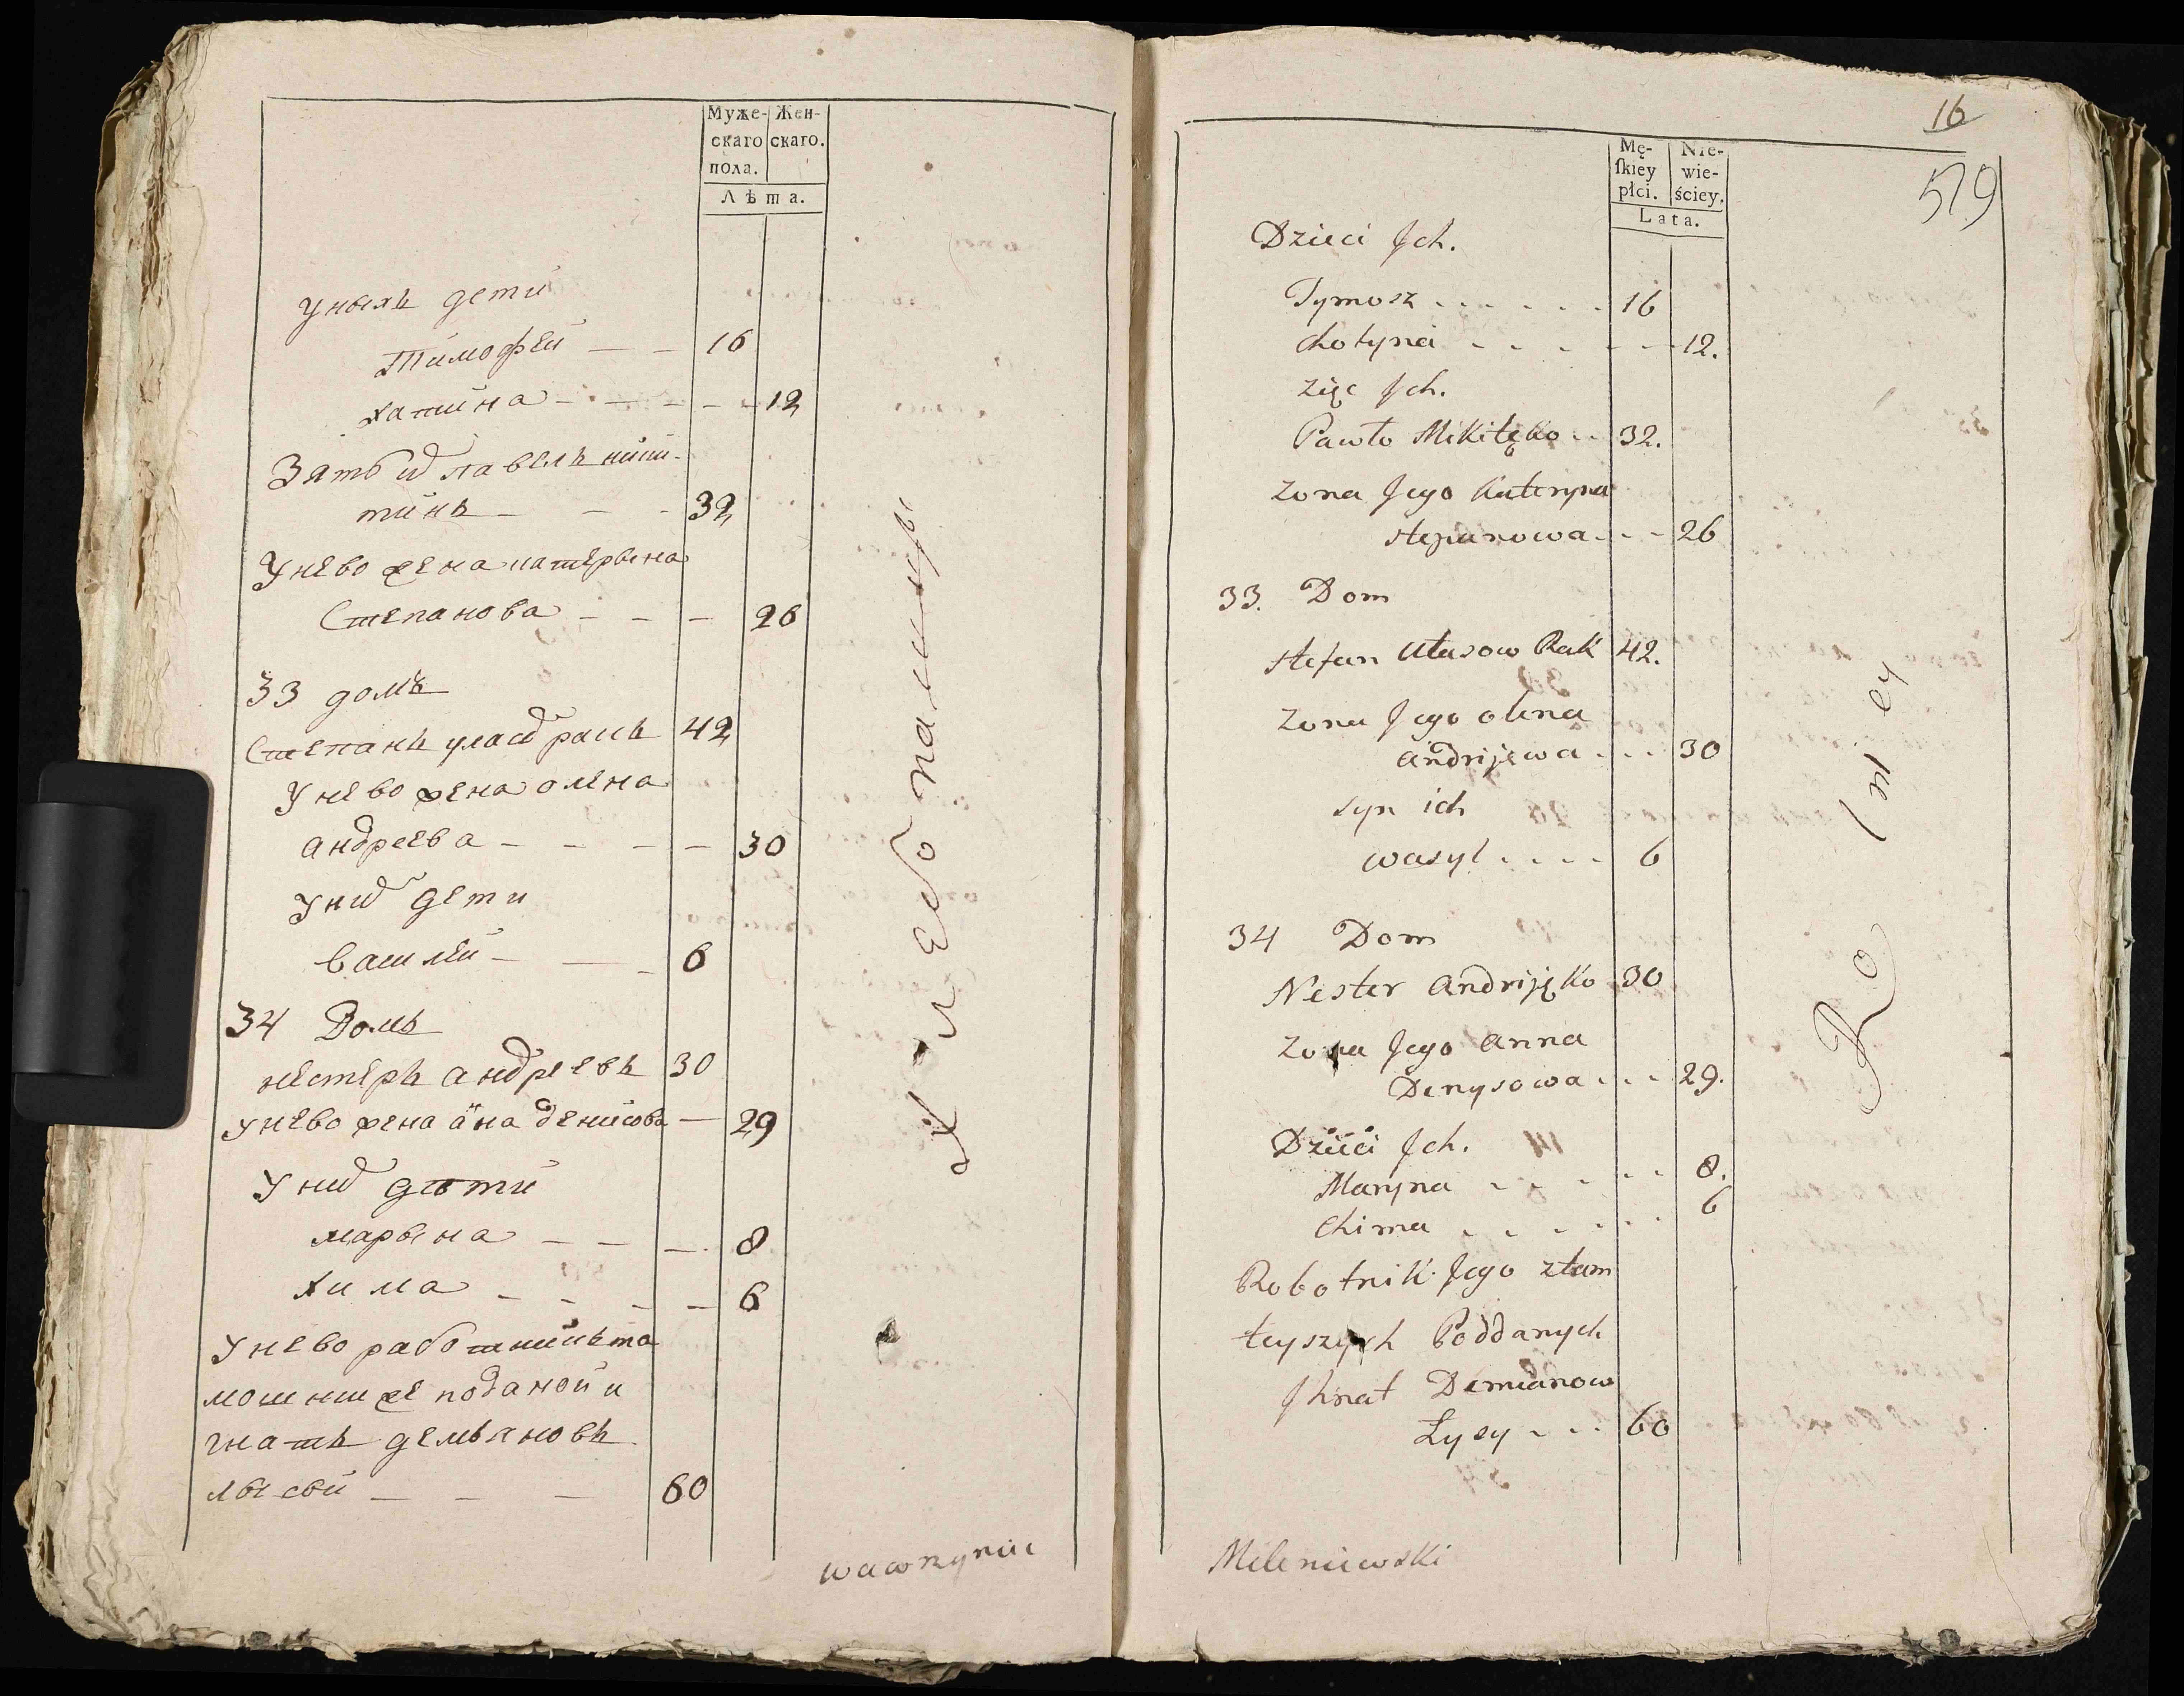 Муже-
скаго
пола.
Жен-
скаго.
Лѣта.
У ныхъ дети
Тимофей — — 16
хатина — — — 12
Зять их павелъ ники-
тинъ — — 32
У нево жена катерына
Степанова — — — 26
33 домъ
Степанъ улас ракъ 42
У нево жена олена
андреева — — — 30
У них дети
василей — — 6
34 Домъ
нестеръ андреевъ 30
У нево жена анна денисова — 29
У них дѣти
марына — — — 8
хима — — — 6
У нево работникъ та
мошни же поданой и
гнатъ демьяновъ
лысей — — — 60
хлебопашцы
wawrzyniec
16
579
Mę-
skiey
płci.
Nie-
wie-
ściey.
Lata.
Dzieci Jch.
Tymosz . . . . . 16
chotyna . . . . . 12.
Zięć Jch.
Pawło Mikitęko . . 32.
Zona Jego Kateryna
stepanowa . . . 26
33. Dom
stefan Ułasow Rak 42.
Zona Jego olena
andrijewa . . . 30
syn ich
wasyl . . . . 6
34 Dom
Nester andrijęko 30
Zona Jego anna
Denysowa . . . 29.
Dzieci Jch.
Maryna . . . . . 8.
Chima . . . . . . 6
Robotnik Jego ztam
teyszych Poddanych
Jhnat Demianow
Łysy . . . 60
Rolniey
Meleniewski